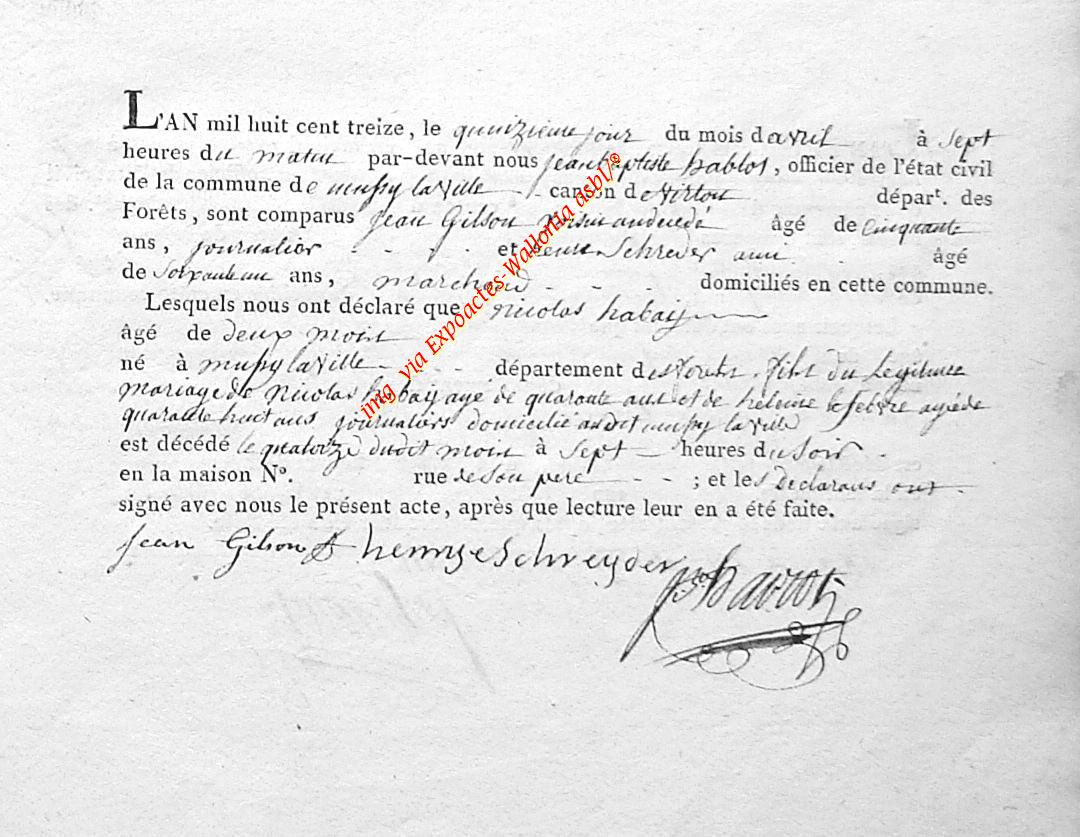 L'AN mil huit cent treize, le quinzieme jour du mois davril à sept
heures du matin par-devant nous jean baptiste hablot, officier de l'état civil
de la commune de mussy la ville canton de virton départ. des
Forêts, sont comparus jean Gilson voisin audecedé âgé de cinquante
ans, journalier et henri Schreder ami âgé
de Soixante ans, marchand domiciliés en cette commune.
Lesquels nous ont déclaré que nicolas habaij
âgé de deux mois
né à mussy la ville département des forets, fils du legitime
mariage de nicolas habaij agé de quarante ans et de heleine lefebvre agéé de
quarante huit ans journaliers domicilié audit mussy la ville
est décédé le quatorze dudit mois à sept heures du soir
en la maison N°. rue de son pere ; et les declarans ont
signé avec nous le présent acte, après que lecture leur en a été faite.
jean Gilson henry Schreyder
img via Expoactes-Wallonia asbl/®